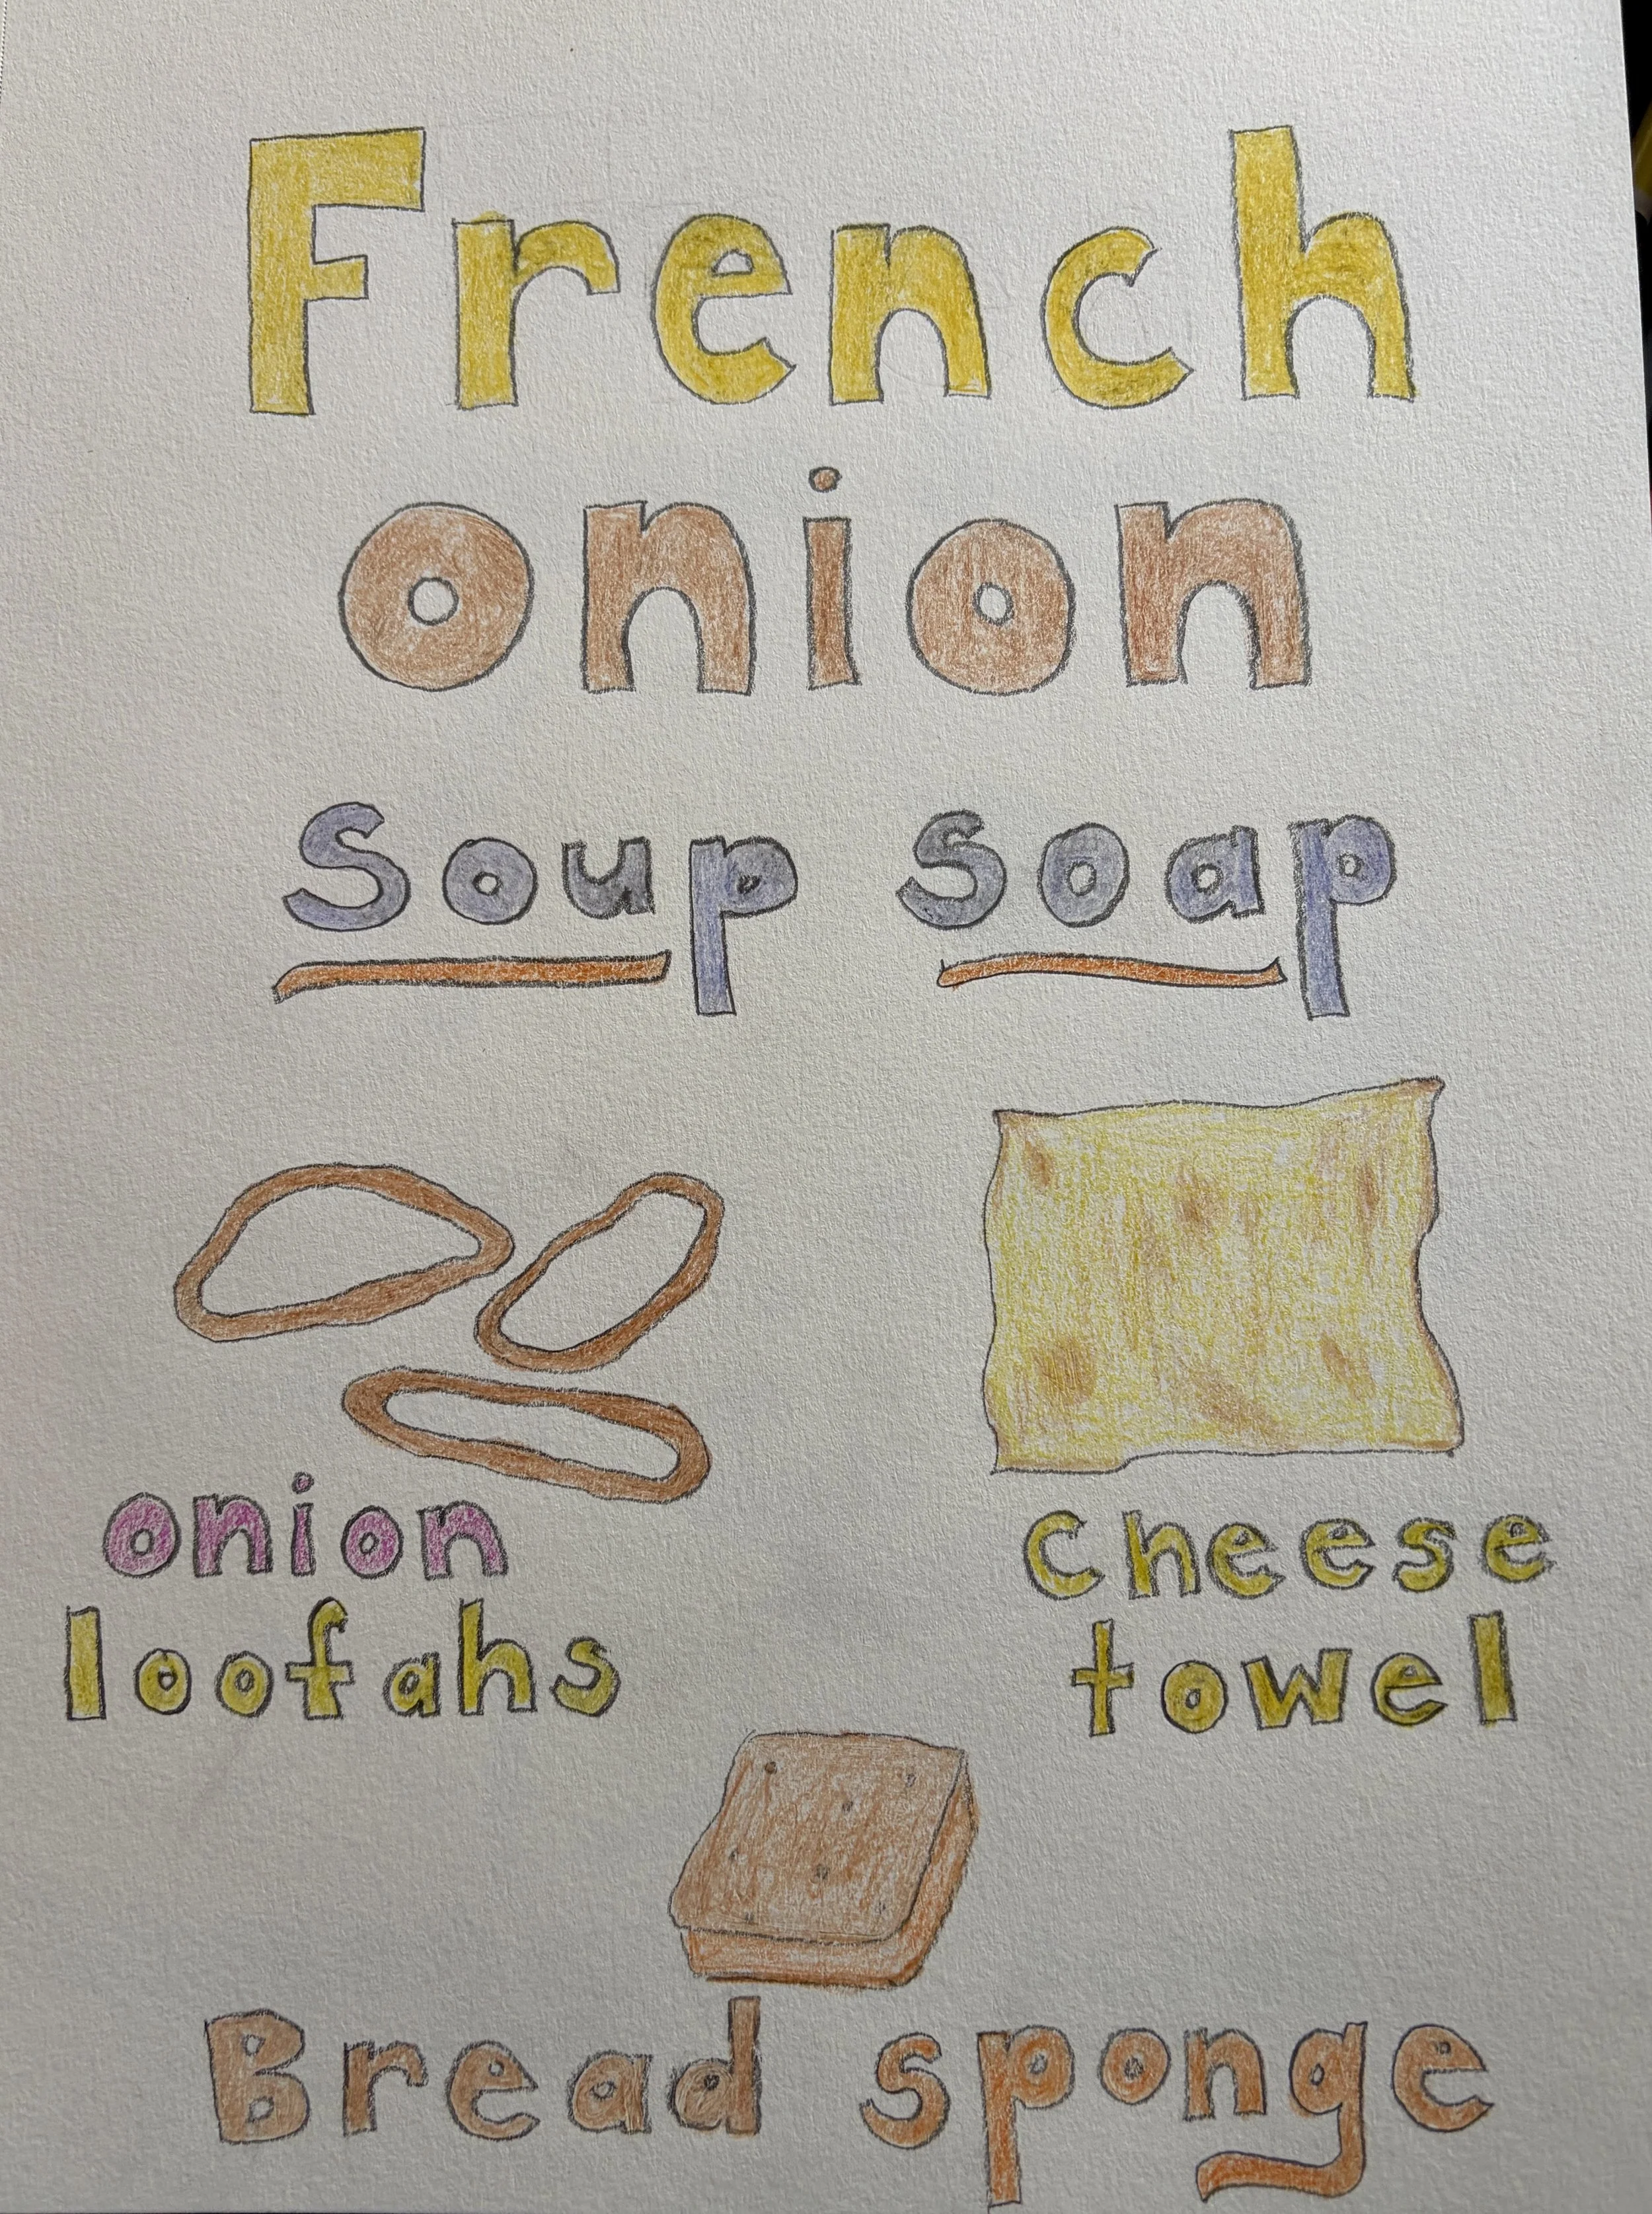 French
onion
Soup soap
onion
loofahs
cheese
towel
Bread sponge